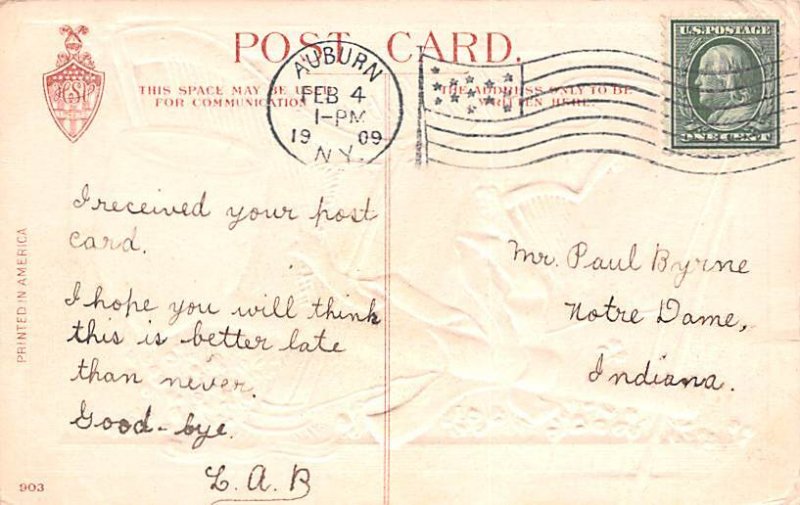 POST CARD.
THIS SPACE MAY BE USED
FOR COMMUNICATION
THE ADDRESS ONLY TO BE
WRITTEN HERE.
AUBURN
FEB 4
1-PM
1909
N.Y.
U.S. POSTAGE
ONE CENT
I received your post
card.
I hope you will think
this is better late
than never.
Good-bye.
L. A. B
Mr. Paul Byrne
Notre Dame,
Indiana.
PRINTED IN AMERICA
903